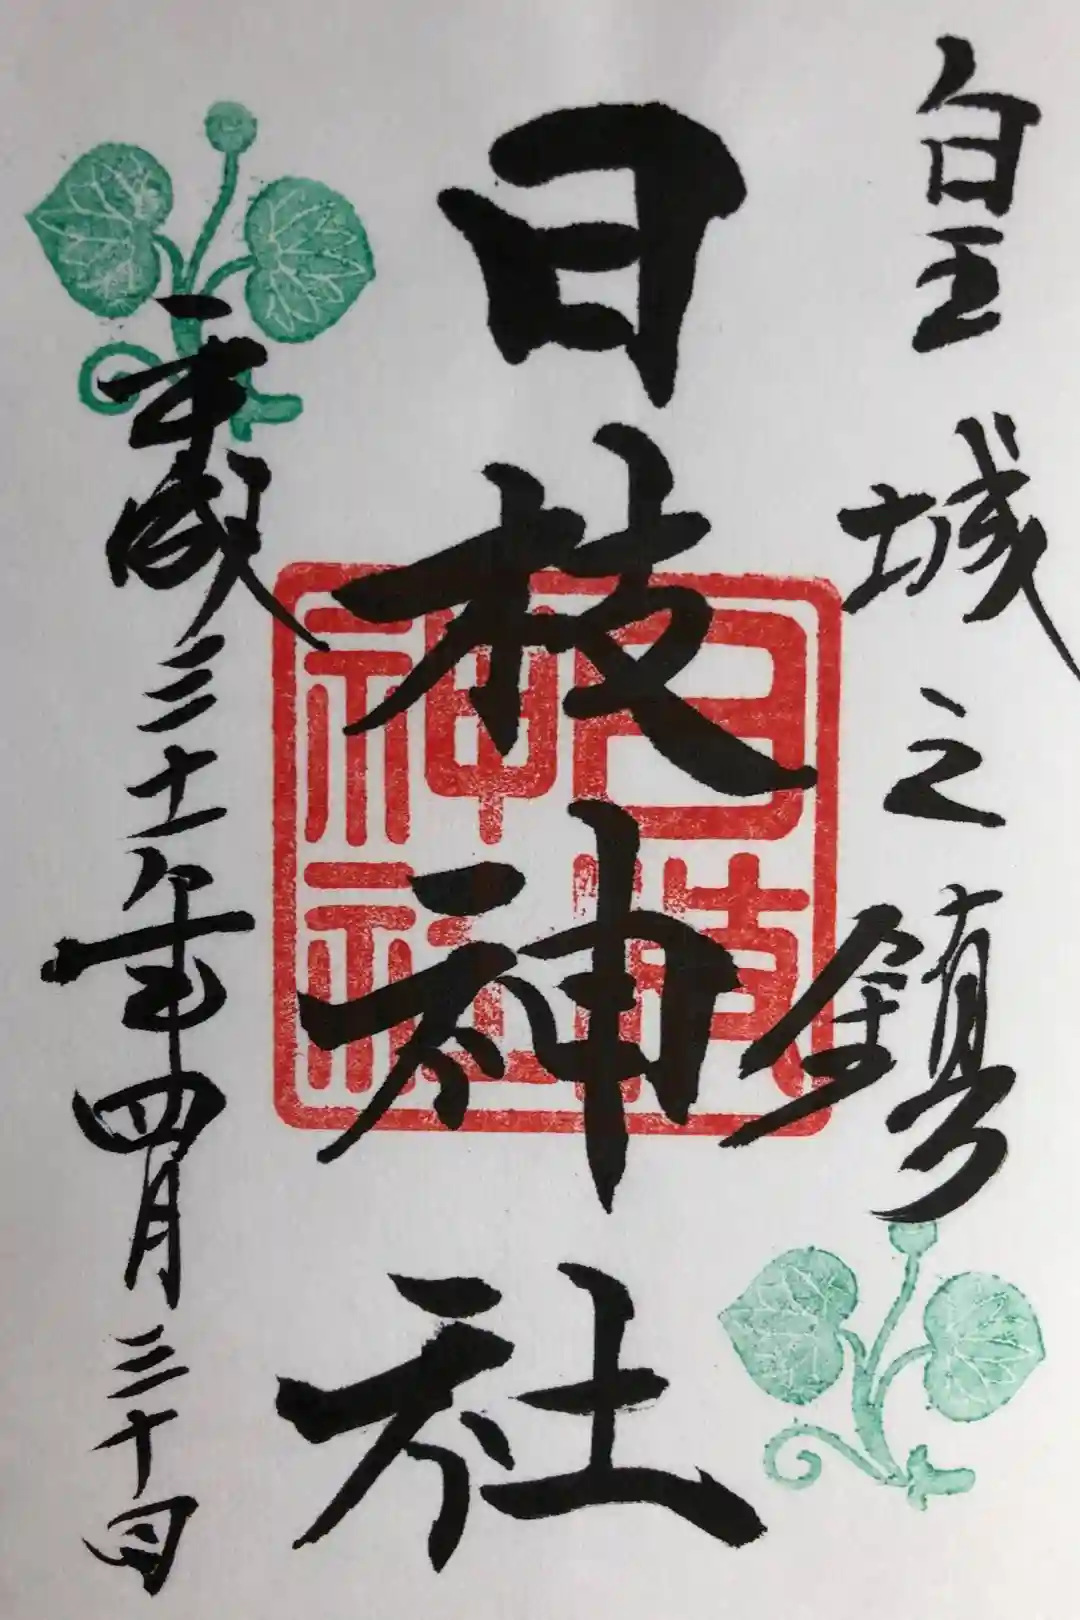 皇城之鎮
日枝神社
平成三十一年四月三十日
日枝神社